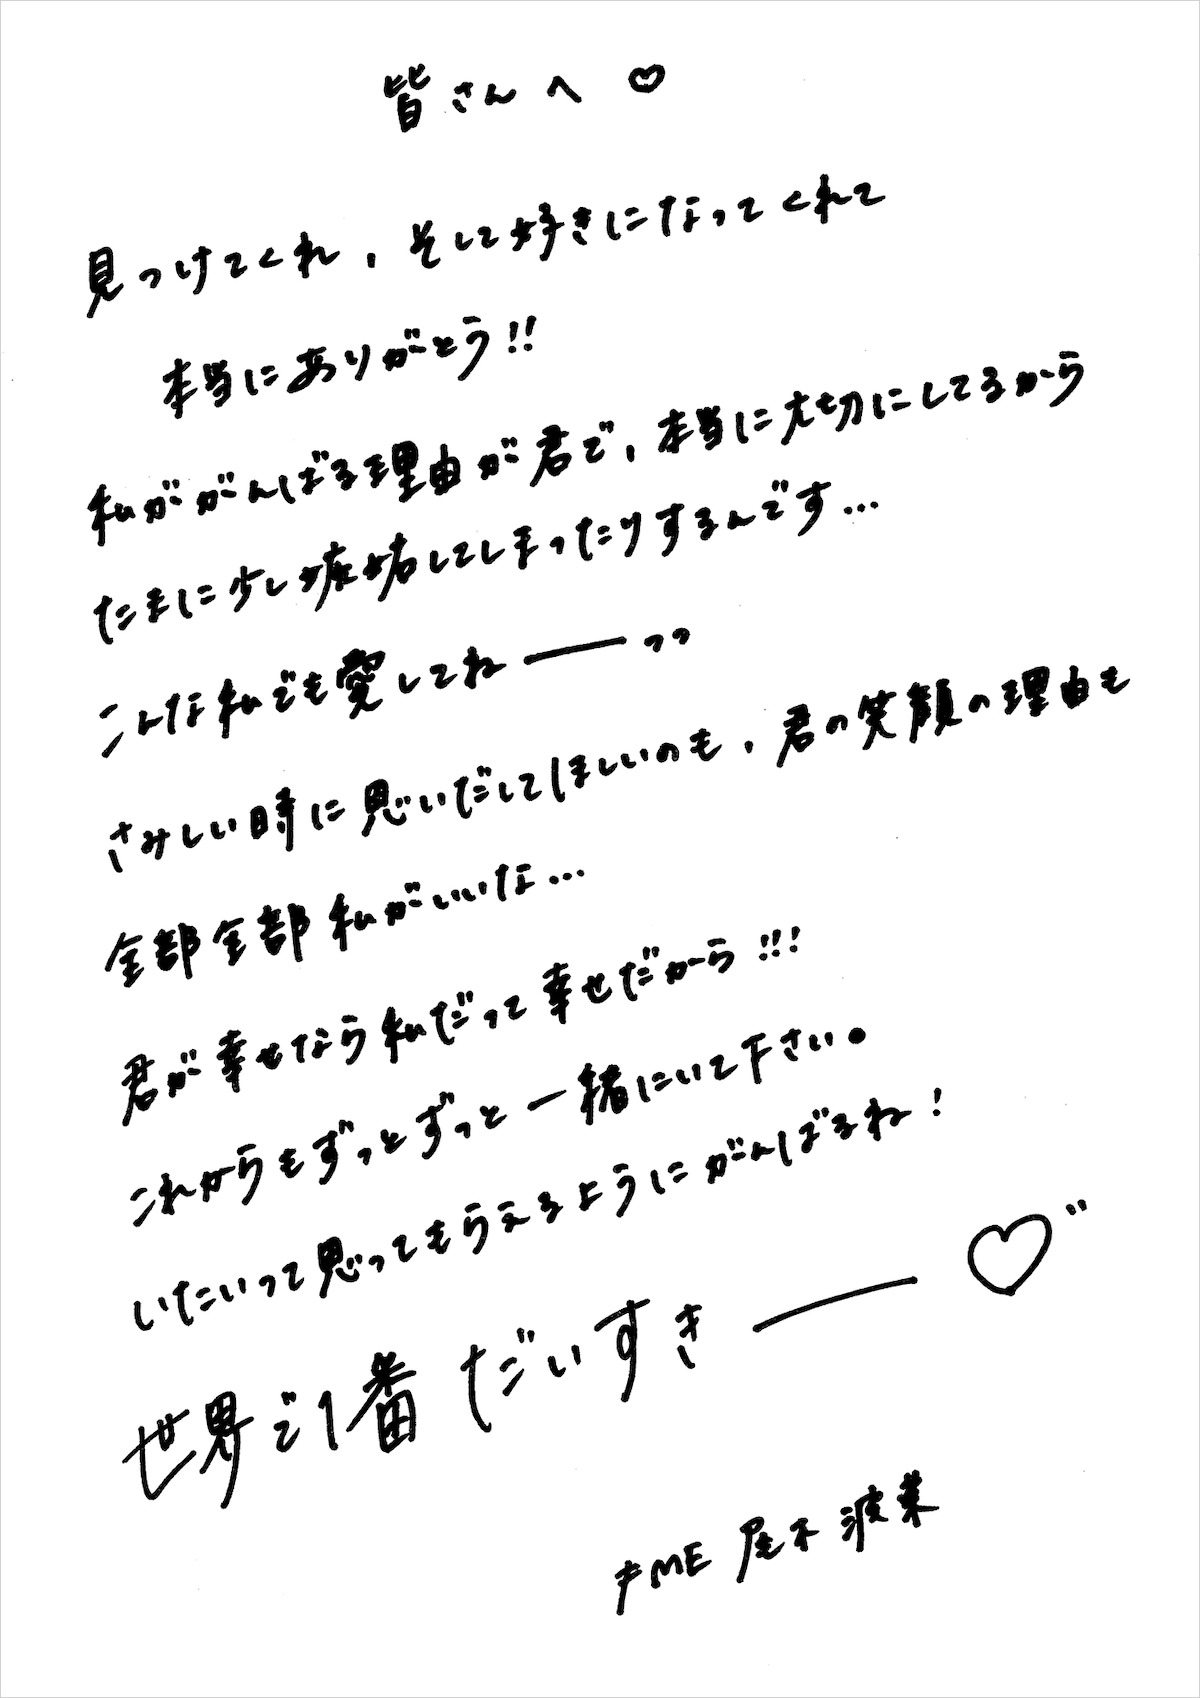 皆さんへ♡
見つけてくれ、そして好きになってくれて
本当にありがとう!!
私ががんばる理由が君で、本当に大切にしてるから
たまに少し嫉妬してしまったりするんです…
こんな私でも愛してねーーッッ
さみしい時に思いだしてほしいのも、君の笑顔の理由も
全部全部私がいいな…
君が幸せなら私だって幸せだから!!!
これからもずっとずっと一緒にいて下さい。
いたいって思ってもらえるようにがんばるね!
世界で1番だいすきーー♡"
≠ME 尾木波菜